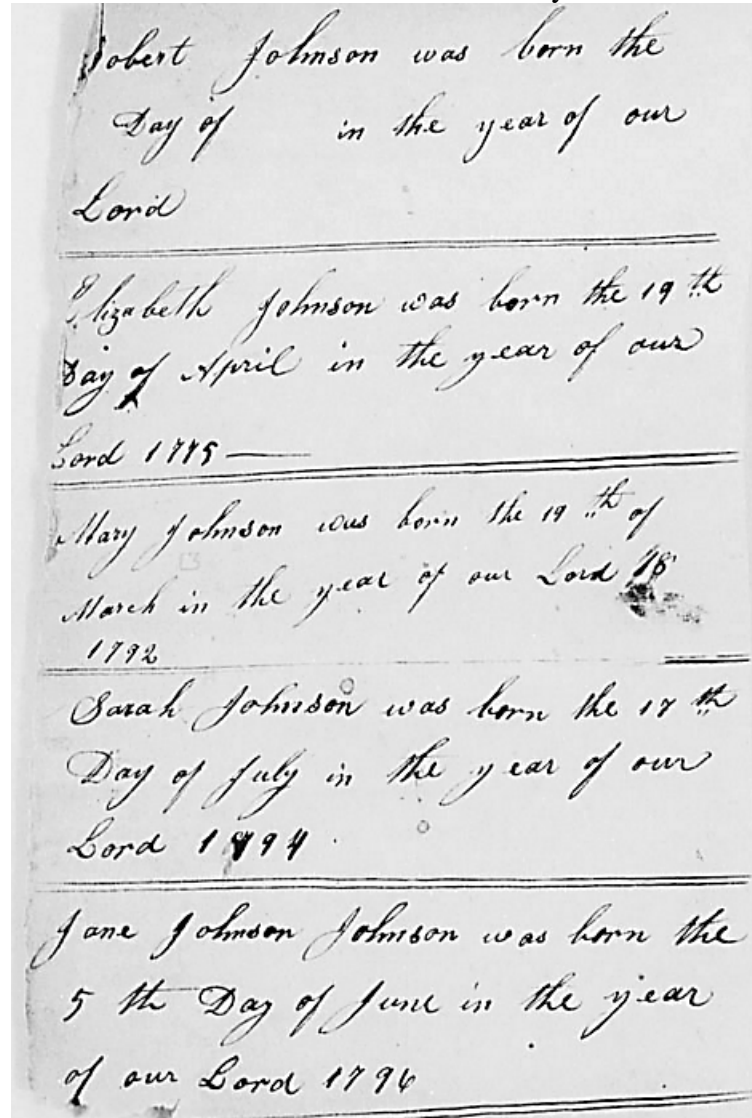 Robert Johnson was born the
Day of in the year of our
Lord
Elizabeth Johnson was born the 19th
Day of April in the year of our
Lord 1775 —
Mary Johnson was born the 19th of
March in the year of our Lord 18
1792
Sarah Johnson was born the 17th
Day of July in the year of our
Lord 1794
Jane Johnson Johnson was born the
5th Day of June in the year
of our Lord 1796